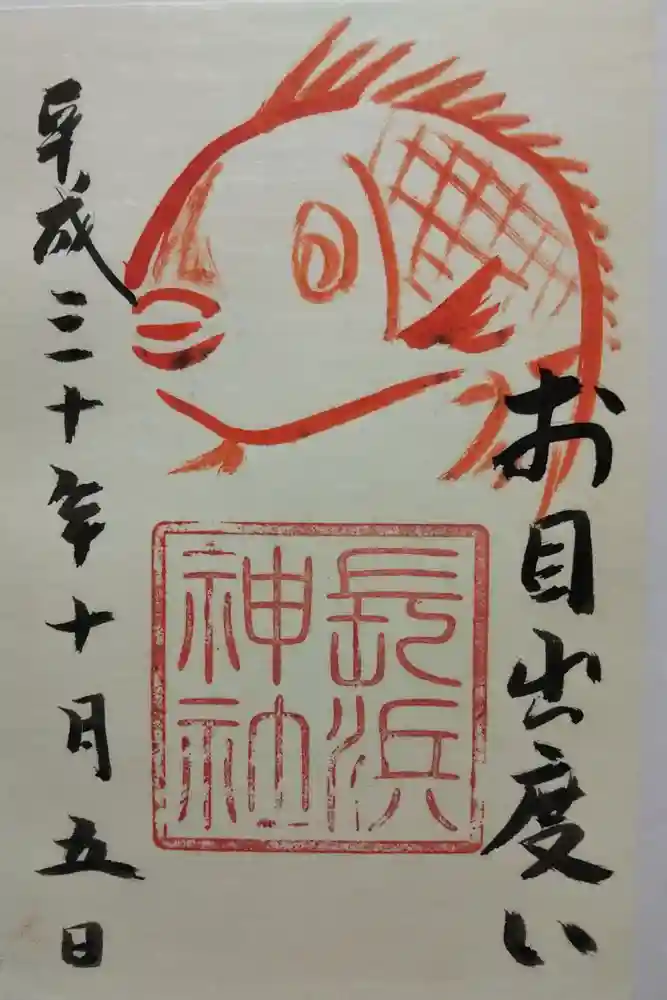 お目出度い
長浜
神社
平成三十年十月五日